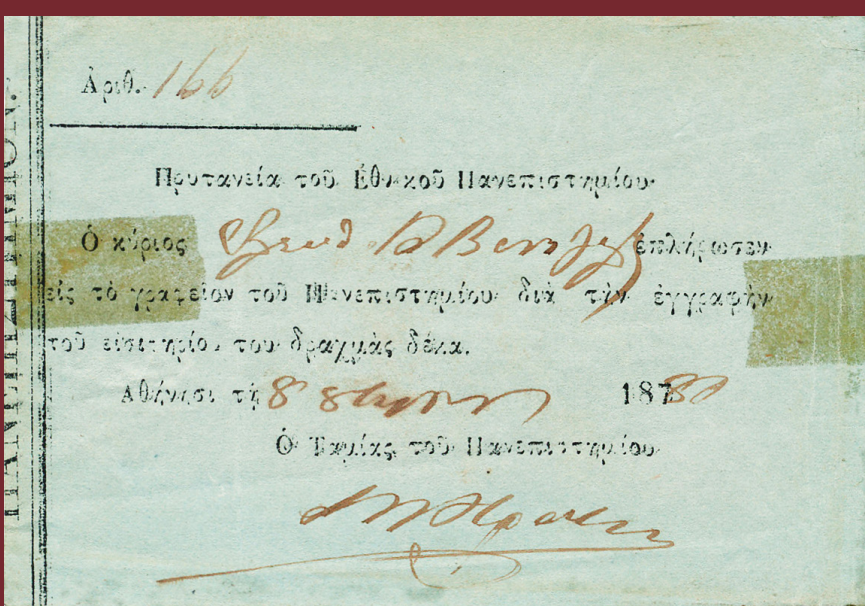 Ἀριθ. 166
Πρυτανεία τοῦ Ἐθνικοῦ Πανεπιστημίου
Ὁ κύριος Κ Βενιζέλος ἐπλήρωσεν
εἰς τὸ γραφεῖον τοῦ Πανεπιστημίου διὰ τὴν ἐγγραφὴν
τοῦ εἰσιτηρίου του δραχμὰς δέκα.
Ἀθήνησι τῇ 8 8βρίου 1880
Ὁ Ταμίας τοῦ Πανεπιστημίου
ΠΑΝΕΠΙΣΤΗΜΙΟΝ.